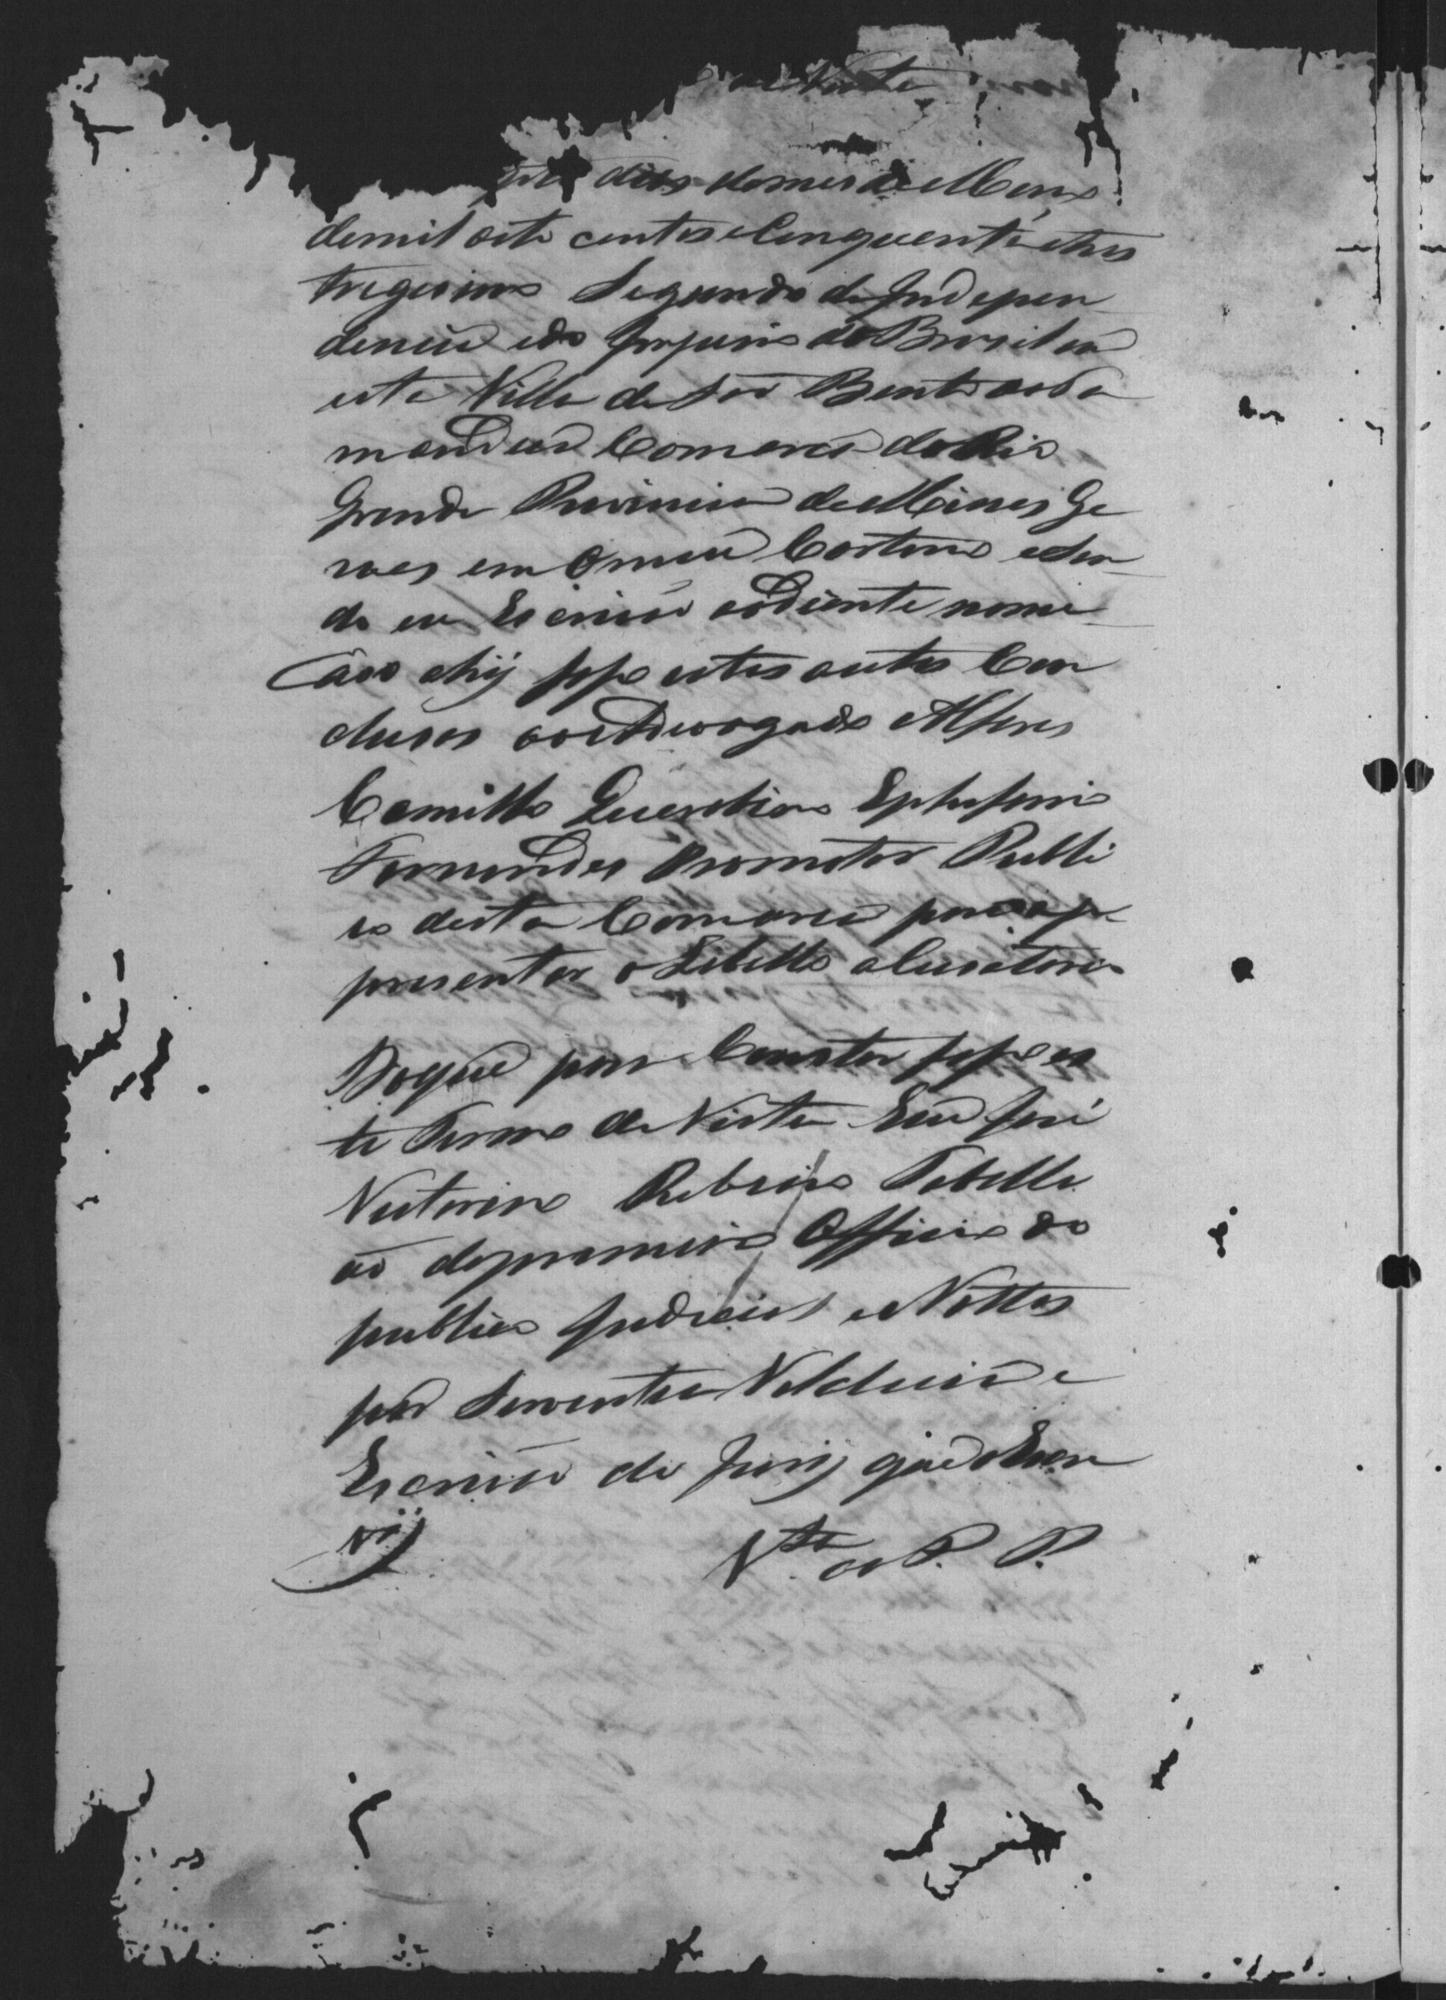 de Vista
dias do mes de Março
demil oito centos e Cinquenta etres
trigesimo Segundo da Indepen
dencia edo Imperio do Brasil nes
esta Villa de São Bento do Ta
manduá Comarca do Rio
Grande Provincia de Minas Ge
raes em omeu Cartorio esen
do eu Escrivão adiante nome
ado ahij faço estes autos Con
clusos ao Advogado Alferes
Camillo
Fernandes Promotor Publi
co desta Comarca para a
presentar o Libello acusatorio
Doque para Constar faço es
te Termo de Vista Eu José
Victorino Ribeiro Tabelli
ão do primeiro Officio do
publico Judicial e Nottas
por Serventia Vitalicia e
Escrivão do Jury que o Escre
vij
V.ta ao P. P.